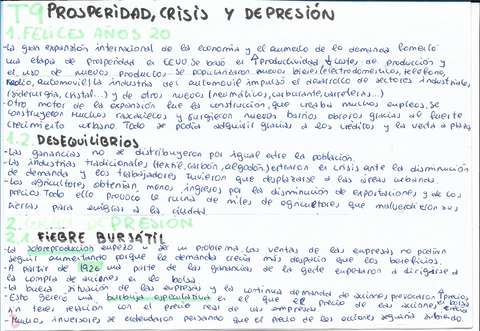 T9 PROSPERIDAD, CRISIS Y DEPRESIÓN
1. FELICES AÑOS 20
-La gran expansión internacional de la economía y el aumento de la demanda fomentó
una etapa de prosperidad en EEUU. Se basó en ↑productividad, ↓costes de producción y
el uso de nuevos productos. Se popularizaron nuevos bienes (electrodomésticos, teléfono,
radio, automóvil). La industria del automóvil impulsó el desarrollo de sectores industriales,
(siderurgia, cristal...) y de otros nuevos (neumático, carburante, carreteras...)
-Otro motor de la expansión fue la construcción, que creaba muchos empleos. Se
construyeron muchos rascacielos y surgieron nuevos barrios obreros gracias al fuerte
crecimiento urbano. Todo se podía adquirir gracias a los créditos y la venta a plazos
1.2. DESEQUILIBRIOS
-Las ganancias no se distribuyeron por igual entre la población.
-Las industrias tradicionales (textil, carbón, algodón) entraron en crisis ante la disminución
de demanda y los trabajadores tuvieron que desplazarse a las áreas urbanas.
-Los agricultores obtenían menos ingresos por la disminución de exportaciones y de los
precios. Todo ello provocó la ruina de miles de agricultores que malvendieron sus
tierras para emigrar a la ciudad.
2. GRAN DEPRESIÓN
2.1. FIEBRE BURSÁTIL
-La sobreproducción empezó a ser un problema. Las ventas de las empresas no podían
seguir aumentando porque la demanda crecía más despacio que los beneficios.
-A partir de 1926 una parte de las ganancias de la gente empezaron a dirigirse a
la compra de acciones en la bolsa
-La buena situación de las empresas y la continua demanda de acciones provocaron ↑precios
-Esto generó una burbuja especulativa en el que el precio de las acciones en bolsa
no tenía relación con el precio real de las empresas.
-Muchos inversores se endeudaron pensando que el precio de las acciones seguiría subiendo